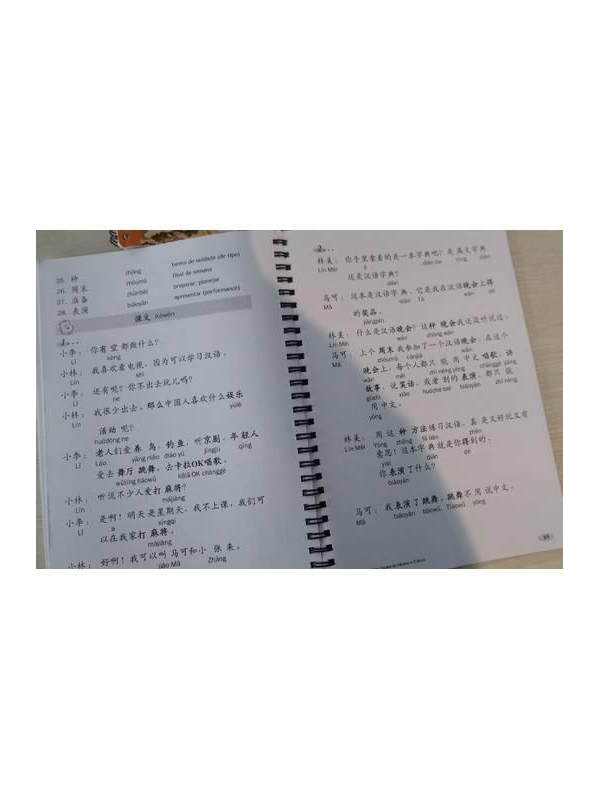 25. 种 zhǒng termo de unidade (de tipo)
26. 周末 zhōumò final de semana
27. 准备 zhǔnbèi preparar; planejar
28. 表演 biǎoyǎn apresentar (performance)
课文 Kèwén
1...
小李： 你有 空 都做什么？
Lǐ kòng
小林： 我喜欢看电视，因为可以学习汉语。
Lín shì
小李： 还有呢？你不出去玩儿吗？
Lǐ ne
小林： 我很少出去。那么中国人喜欢什么娱乐
Lín yúlè
活动 呢？
huódòng ne
小李： 老人们爱养 鸟、钓鱼，听京剧，年 轻人
Lǐ Lǎo yǎng niǎo diào yú jīngjù qīng
爱去 舞厅 跳舞、去卡拉OK唱歌。
wǔtīng tiàowǔ kǎlā OK chànggē
小林： 听说不少人爱打 麻将？
Lín májiàng
小李： 是啊！明天是星期天，我不上课，我们可
Lǐ a xīngqī
以在我家打 麻将？
májiàng
小林： 好啊！我可以叫 马可和小 张 来。
jiào Mǎ Zhāng
2...
林美： 你手里拿着的是一本字典吧？是 英文字典
Lín Měi diǎn ba yīng diǎn
还是汉语字典？
diǎn
马可： 这本是汉语字典，它是我在汉语晚会上得
的奖品。
jiǎngpǐn
林美： 什么是汉语晚会？这种 晚会我还没听说过。
Lín Měi wǎn zhǒng wǎn
马可： 上个 周末 我参加了一个汉语晚会。在这个
Mǎ zhōumò cānjiā wǎn
晚会上，每个人都只 能 用 中文 唱歌、讲
wǎn měi zhǐ néng yòng chànggē jiǎng
故事、说笑话，或者 别的 表演，都只 能
gùshì xiào huòzhě bié biǎoyǎn zhǐ néng
用中文。
yòng
林美： 用 这 种 方法 练习汉语，真 是又好玩又有
Lín Měi Yòng zhǒng fǎ liàn zhēn
意思！这本字典 就是你得到的。
yìsi diǎn dé
你表演了什么？
biǎoyǎn
马可： 我表演了跳舞。跳舞不 用 说中文。
Mǎ biǎoyǎn tiàowǔ Tiàowǔ yòng